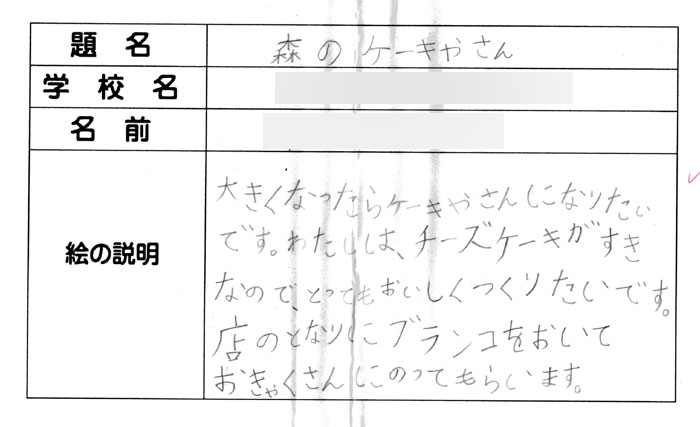 題名 森のケーキやさん
学校名
名前
絵の説明
大きくなったらケーキやさんになりたい
です。わたしは、チーズケーキがすき
なので、とってもおいしくつくりたいです。
店のとなりにブランコをおいて
おきゃくさんにのってもらいます。